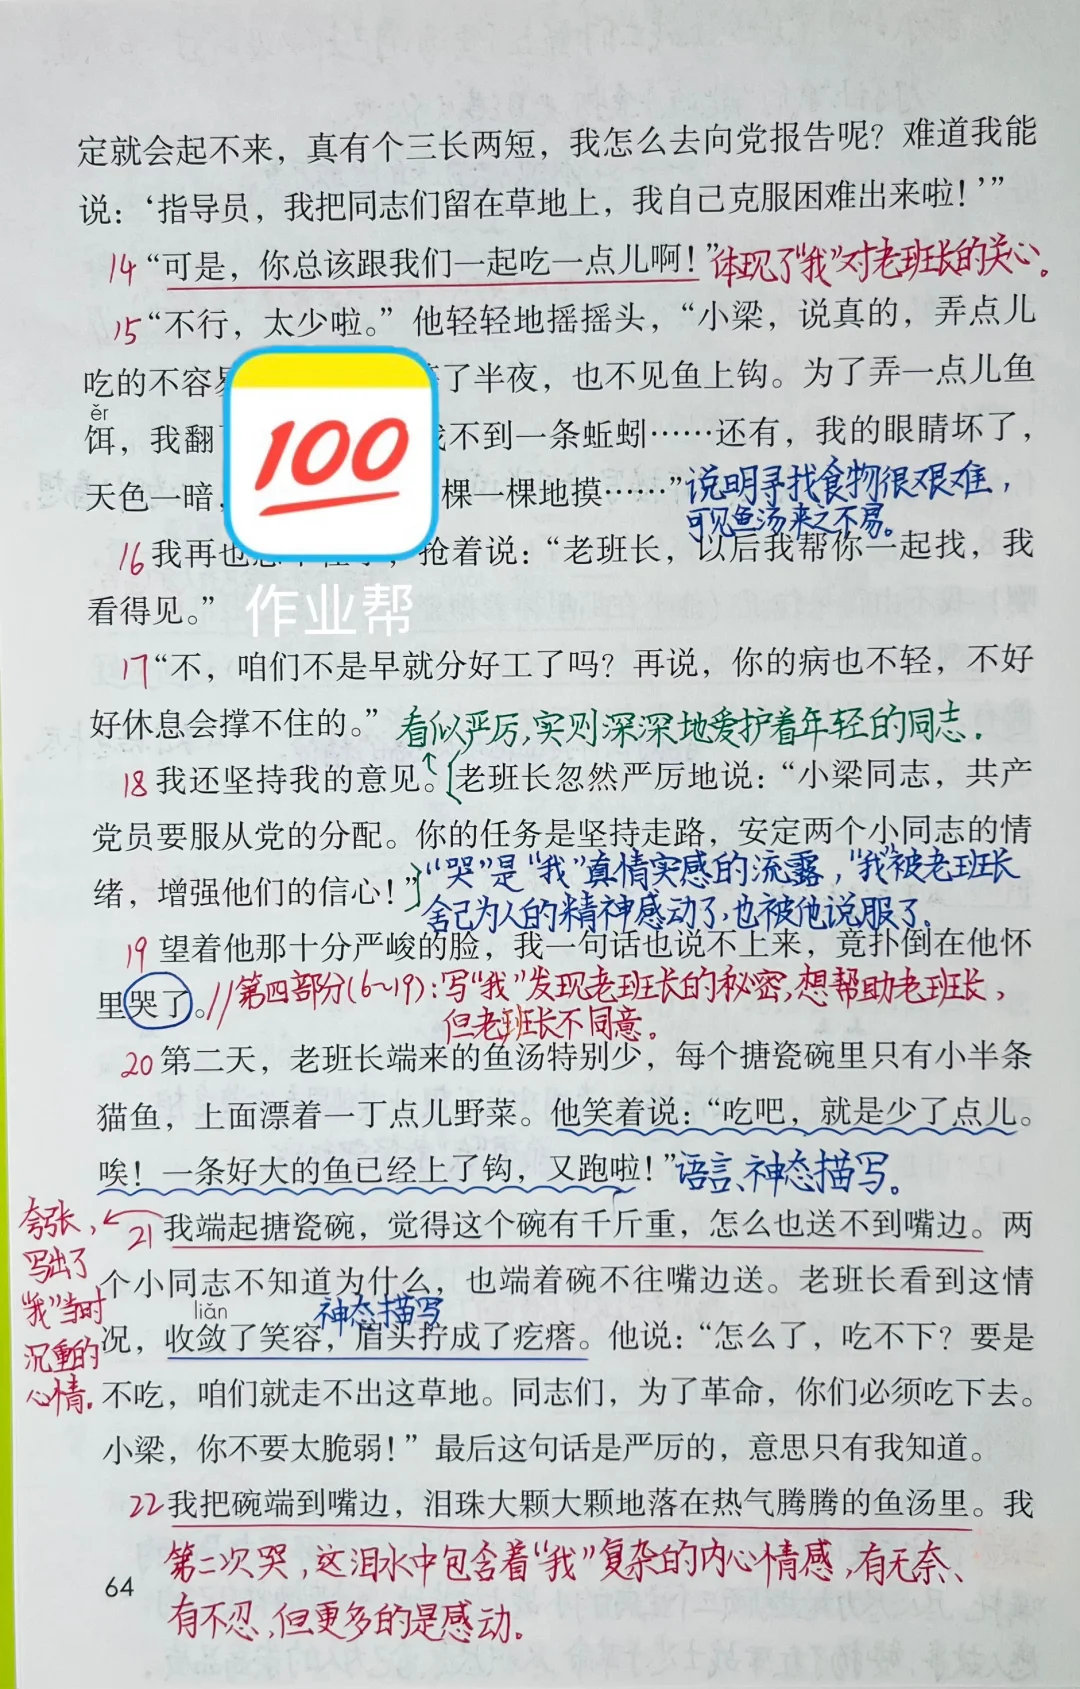 定就会起不来，真有个三长两短，我怎么去向党报告呢？难道我能
说：‘指导员，我把同志们留在草地上，我自己克服困难出来啦！’”
14“可是，你总该跟我们一起吃一点儿啊！”体现了“我”对老班长的关心。
15“不行，太少啦。”他轻轻地摇摇头，“小梁，说真的，弄点儿
吃的不容易 了半夜，也不见鱼上钩。为了弄一点儿鱼
ěr
饵，我翻 不到一条蚯蚓……还有，我的眼睛坏了，
天色一暗， 棵一棵地摸……”说明寻找食物很艰难，
可见鱼汤来之不易。
100
16我再也 抢着说：“老班长，以后我帮你一起找，我
看得见。”
作业帮
17“不，咱们不是早就分好工了吗？再说，你的病也不轻，不好
好休息会撑不住的。”看似严厉，实则深深地爱护着年轻的同志.
18我还坚持我的意见。老班长忽然严厉地说：“小梁同志，共产
党员要服从党的分配。你的任务是坚持走路，安定两个小同志的情
绪，增强他们的信心！”“哭”是“我”真情实感的流露，“我”被老班长
舍己为人的精神感动了，也被他说服了。
19望着他那十分严峻的脸，我一句话也说不上来，竟扑倒在他怀
里哭了。//第四部分(6~19)：写“我”发现老班长的秘密，想帮助老班长，
但老班长不同意。
20第二天，老班长端来的鱼汤特别少，每个搪瓷碗里只有小半条
猫鱼，上面漂着一丁点儿野菜。他笑着说：“吃吧，就是少了点儿。
唉！一条好大的鱼已经上了钩，又跑啦！”语言、神态描写。
夸张，
写出了
“我”当时
沉重的
心情。
21我端起搪瓷碗，觉得这个碗有千斤重，怎么也送不到嘴边。两
个小同志不知道为什么，也端着碗不往嘴边送。老班长看到这情
liǎn
神态描写
况，收敛了笑容，眉头拧成了疙瘩。他说：“怎么了，吃不下？要是
不吃，咱们就走不出这草地。同志们，为了革命，你们必须吃下去。
小梁，你不要太脆弱！”最后这句话是严厉的，意思只有我知道。
22我把碗端到嘴边，泪珠大颗大颗地落在热气腾腾的鱼汤里。我
第二次哭，这泪水中包含着“我”复杂的内心情感，有无奈、
有不忍，但更多的是感动.
64